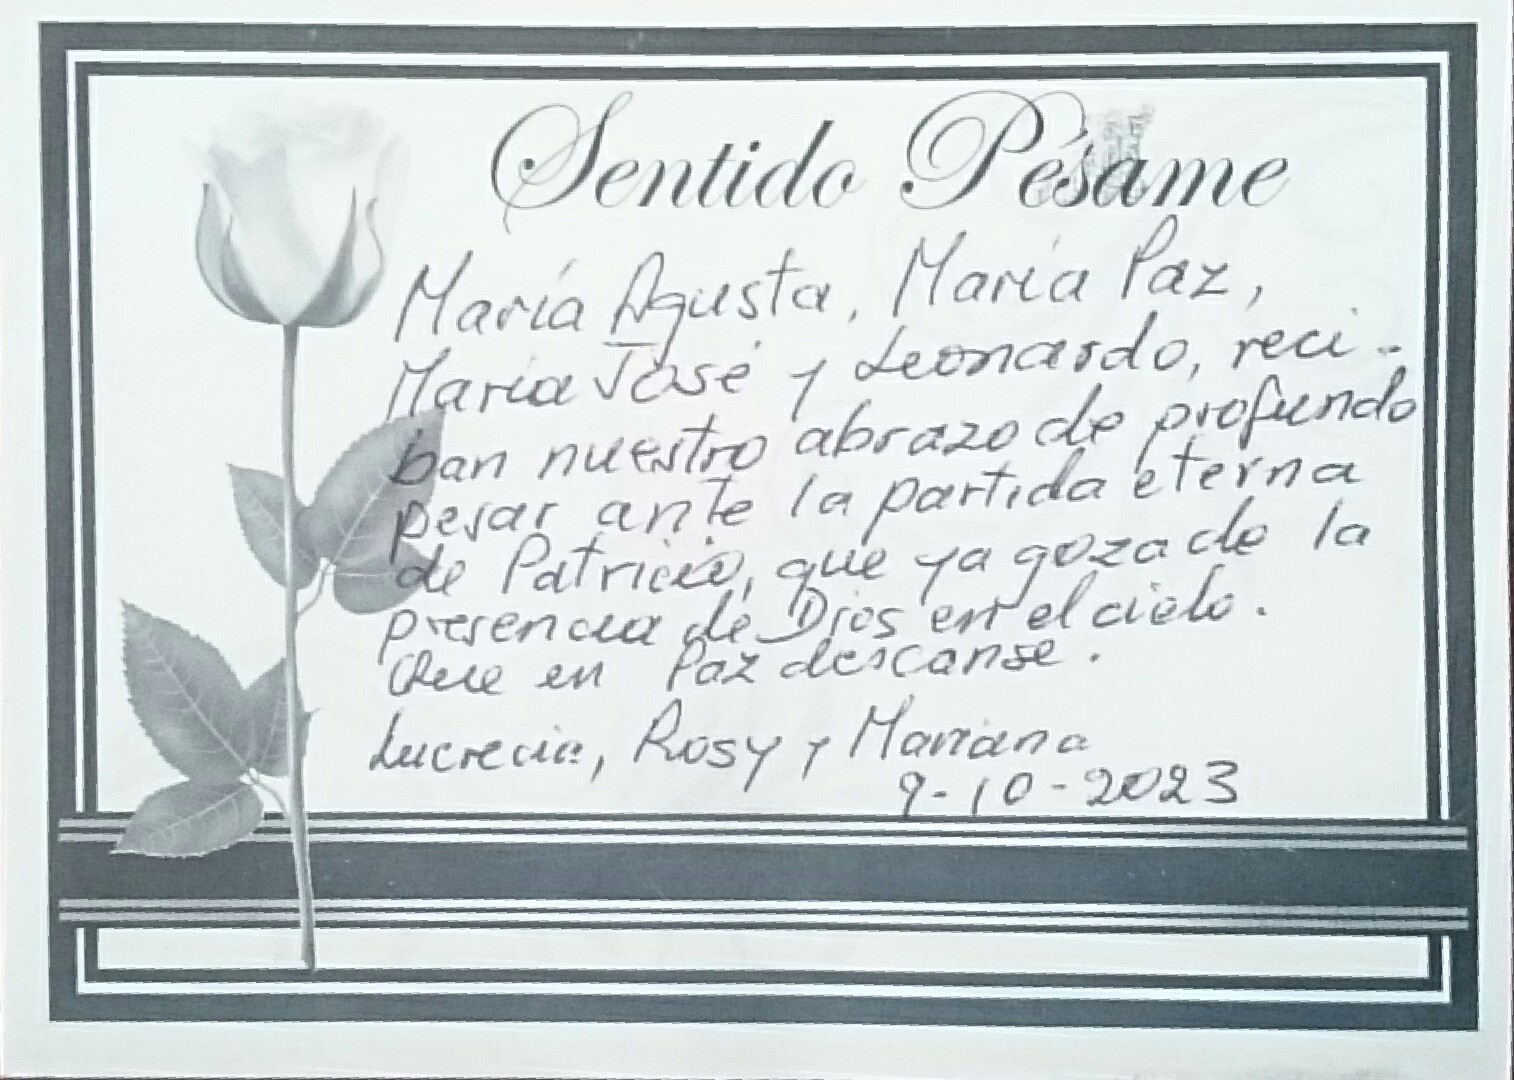 Sentido Pésame
María Agusta, María Paz,
María José y Leonardo, reci-
ban nuestro abrazo de profundo
pesar ante la partida eterna
de Patricio, que ya goza de la
presencia de Dios en el cielo.
Que en Paz descanse.
Lucrecia, Rosy y Mariana
9-10-2023